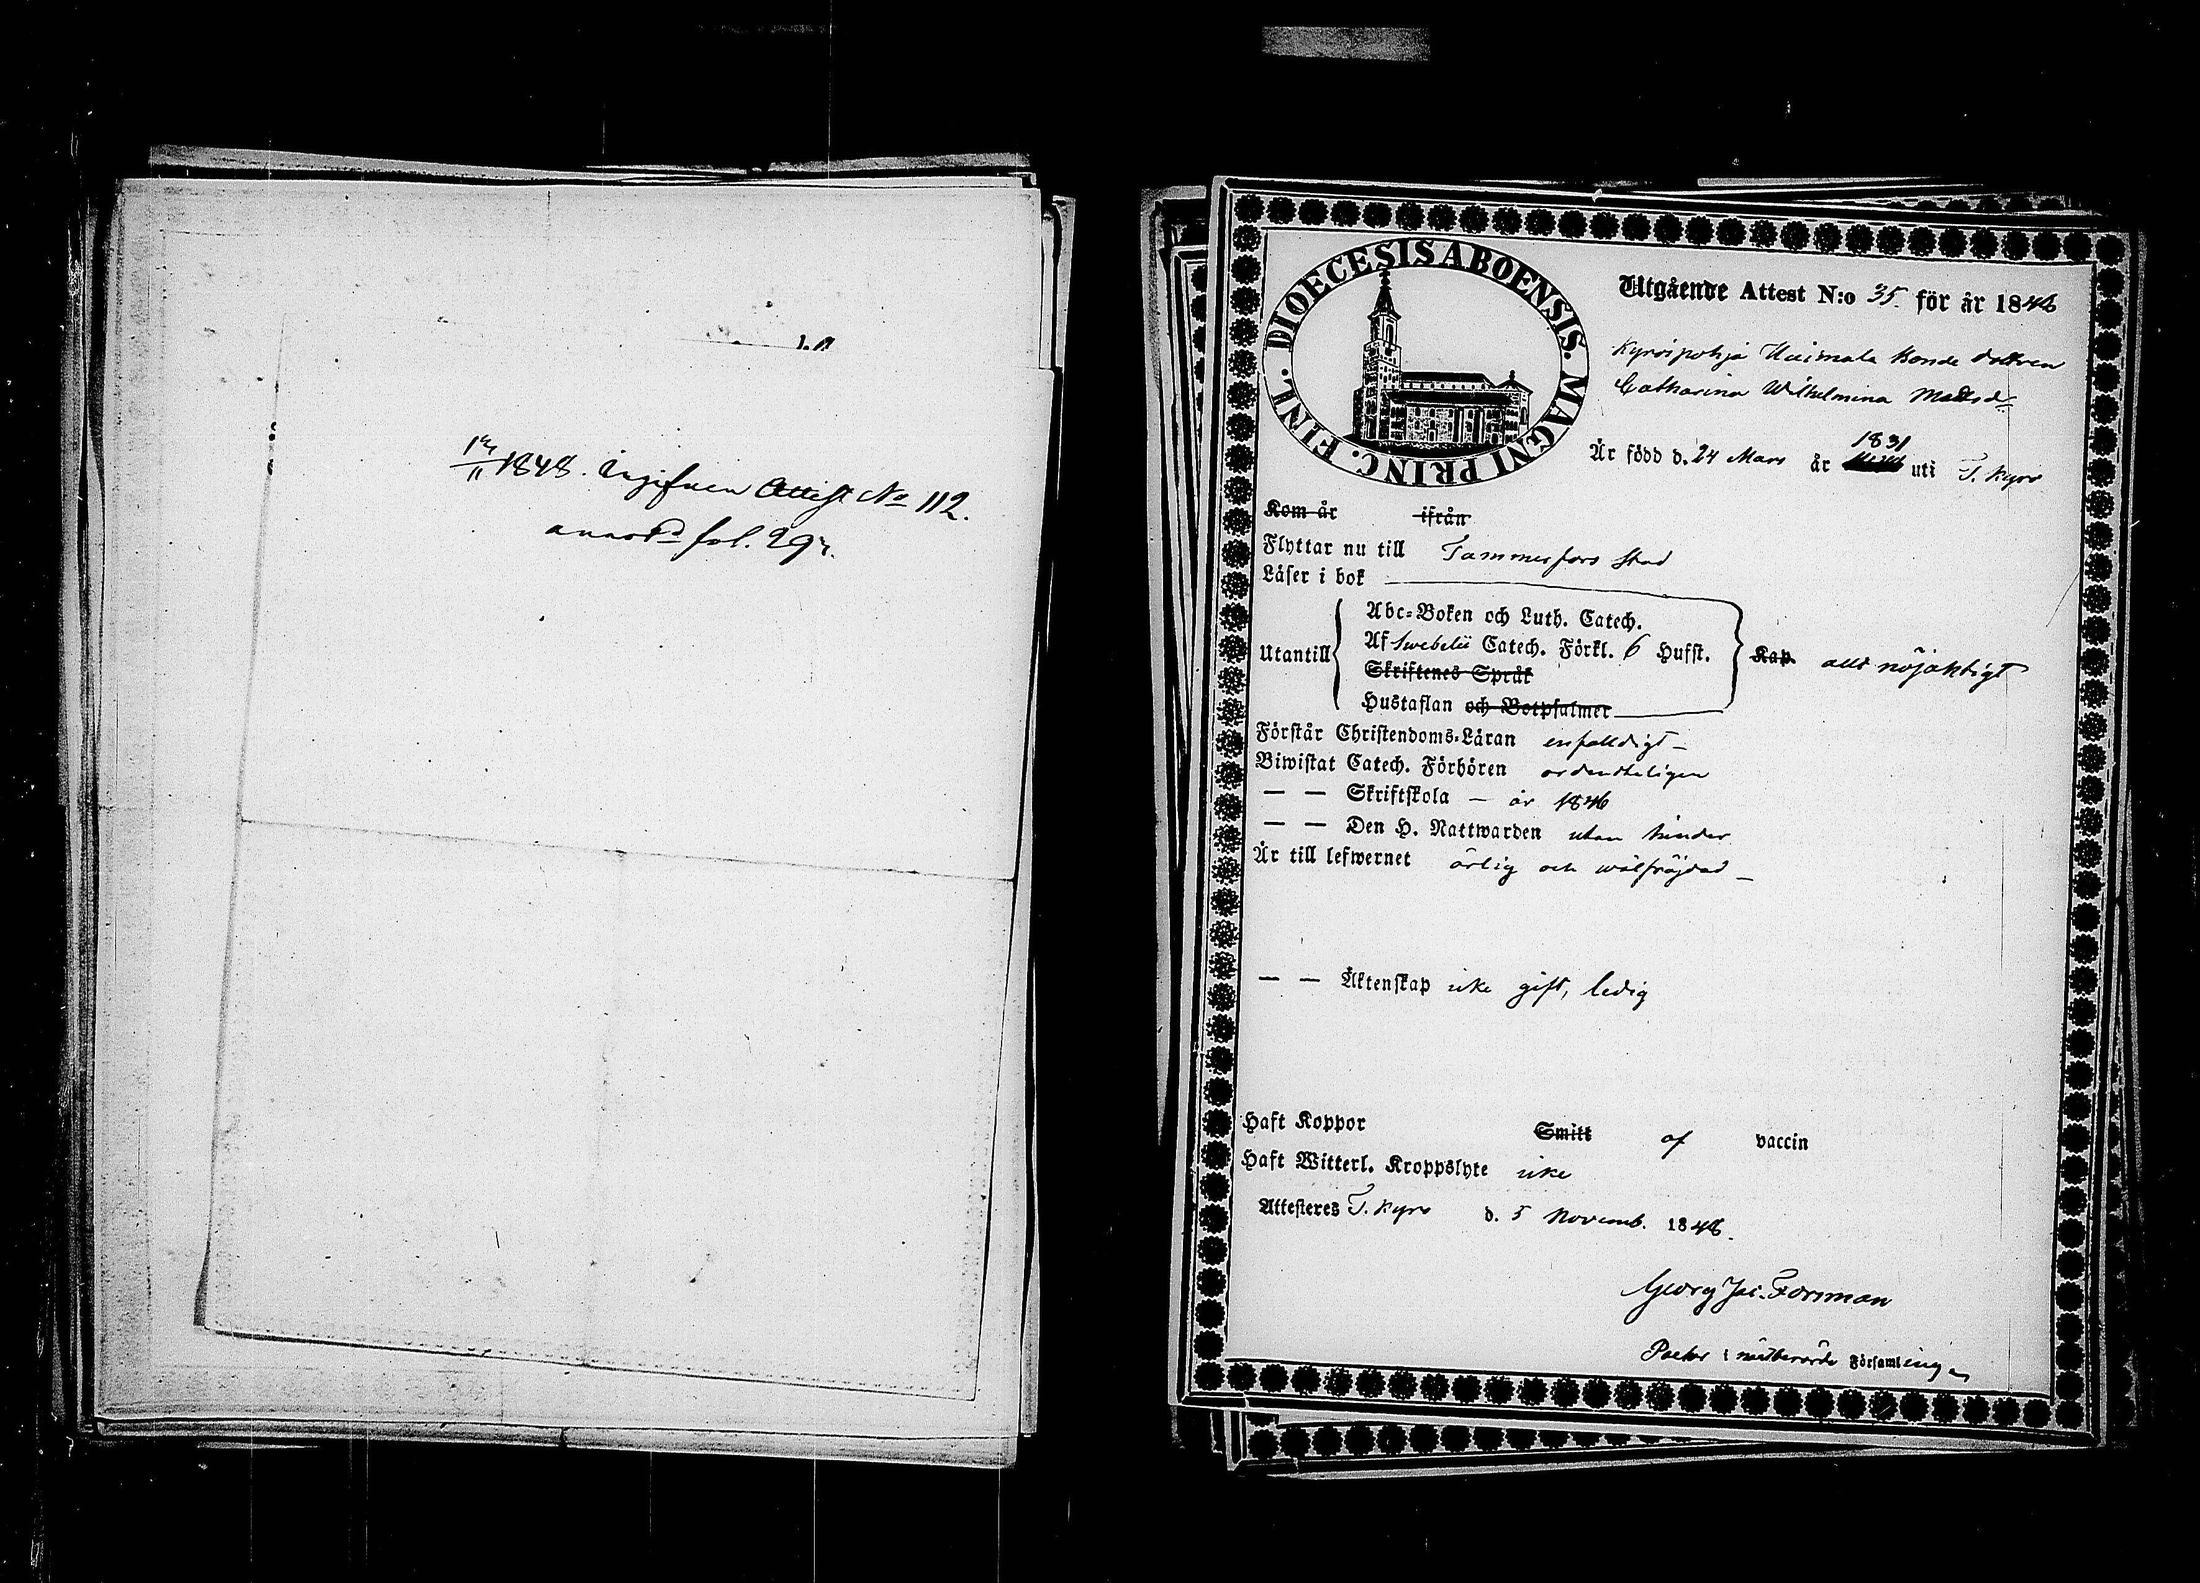 1848. Ingifven Attest No 112.
annot^d fol. 297.
DIOECESIS ABOENSIS. MAGNI PRINC. FINL.
Utgående Attest N:o 35. för år 1848
Kyröspohja Uusimala Bonde dottren
Catharina Wilhelmina Matsd:r
Är född d. 24 Mars år 1831 uti T. Kyro
Kom år ifrån
Flyttar nu till Tammerfors Stad
Läser i bok
Utantill
Abc-Boken och Luth. Catech.
Af Swebelii Catech. Förkl. 6 Hufst.
Skriftenes Språk
Hustaflan och Botpsalmer
Kap. allt nöjaktigt
Förstår Christendoms-Läran enfalldigt –
Biwistat Catech. Förhören ordentheligen
— — Skriftskola – år 1846
— — Den H. Nattwarden utan hinder
Är till lefwernet ärlig och wälfräjdad –
— — Äktenskap icke gift, ledig
Haft Koppor Smitt af vaccin
Haft Witterl. Kroppslyte icke
Attesteres T. Kyro d. 5 Novemb. 1848.
Georg Jac. Forsman
Pastor i nästberörde Församlingen